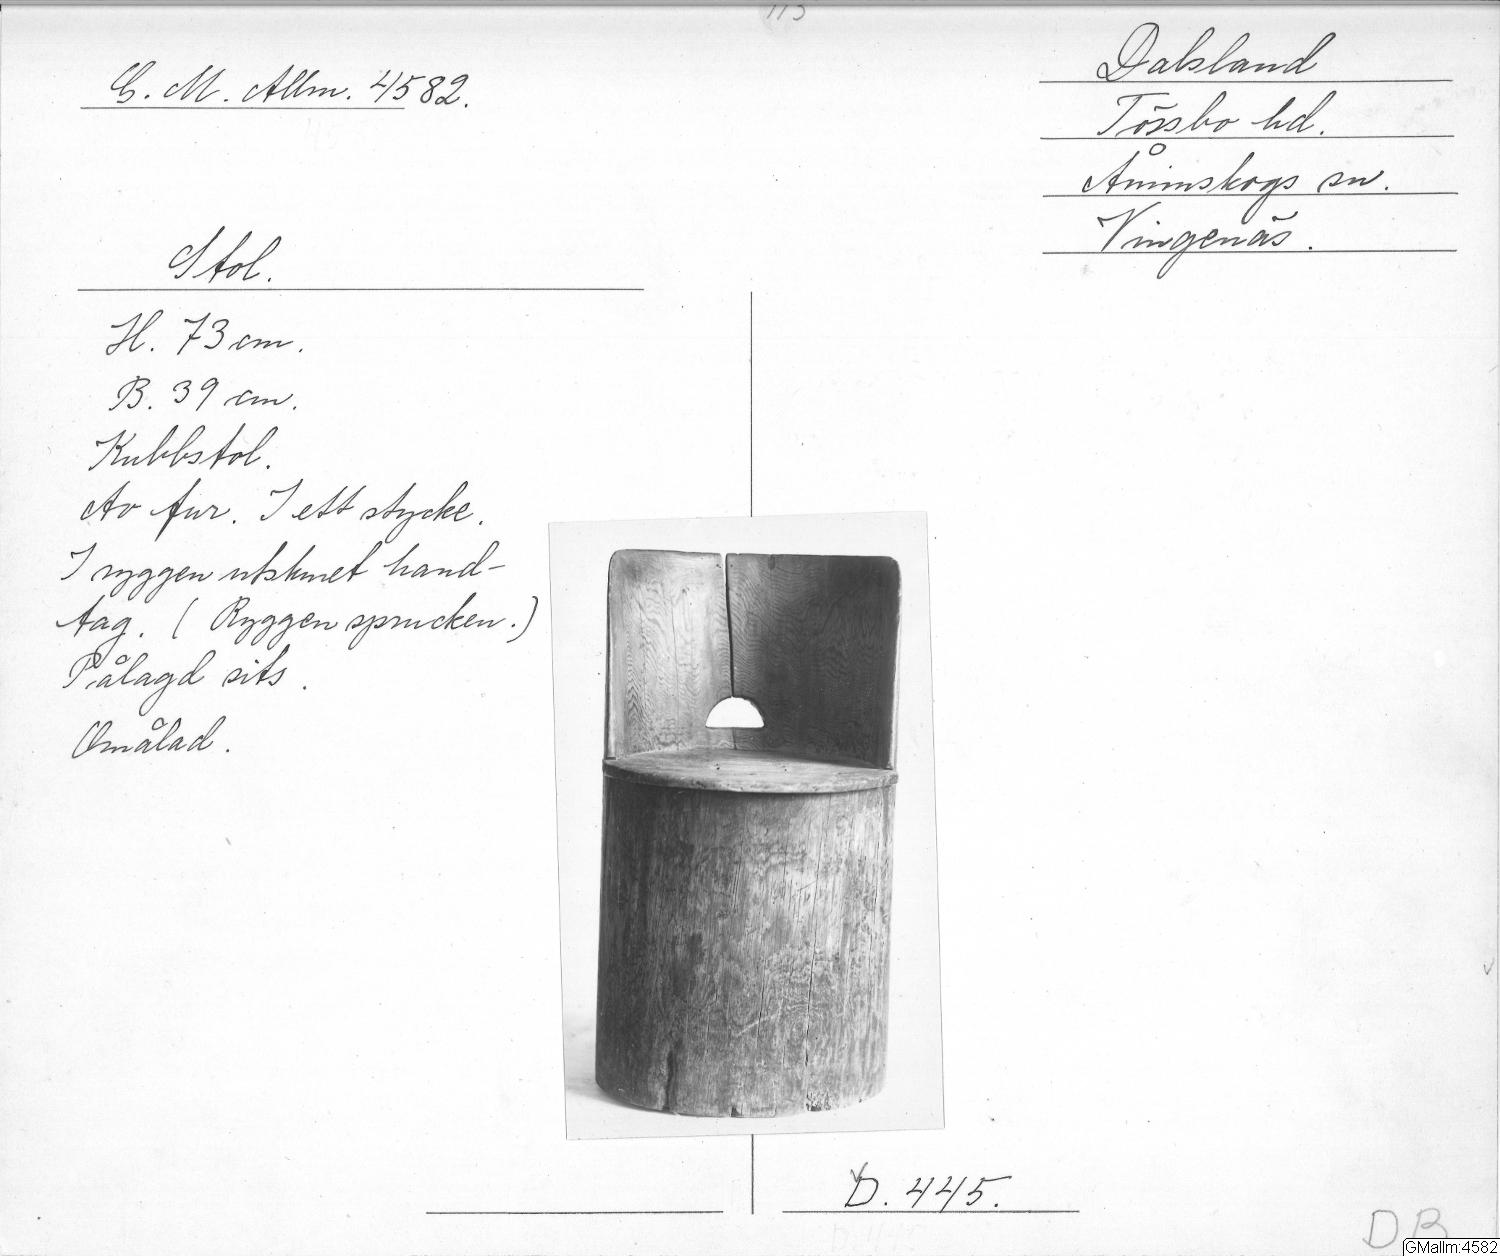 G. M. Allm. 4582.
Dalsland
Tössbo hd.
Ånimskogs sn.
Vingenäs.
Stol.
H. 73 cm.
B. 39 cm.
Kubbstol.
Av fur. I ett stycke.
I ryggen utskuret hand-
tag. (Ryggen sprucken.)
Pålagd sits.
Omålad.
D. 445.
DR
GMallm:4582